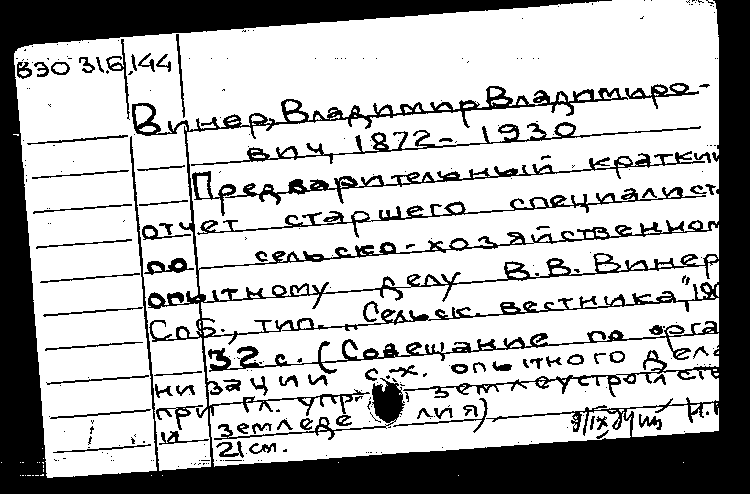 ВЭО 31.6,144
Винер, Владимир Владимиро-
вич, 1872- 1930
Предварительный краткий
отчет старшего специалист
по сельско-хозяйственном
опытному делу В.В. Винер
Спб., тип. „Сельск. вестника",
32 с. (Совещание по орга
низации с.-х. опытного дела
при гл. упр. землеустройств
и земледе лия).
21 см.